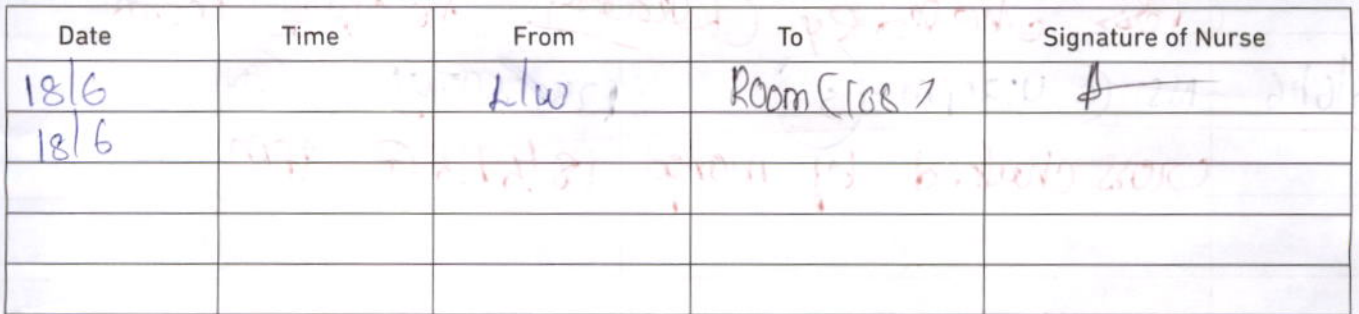 Date Time From To Signature of Nurse
18/6 L/w Room (108)
18/6